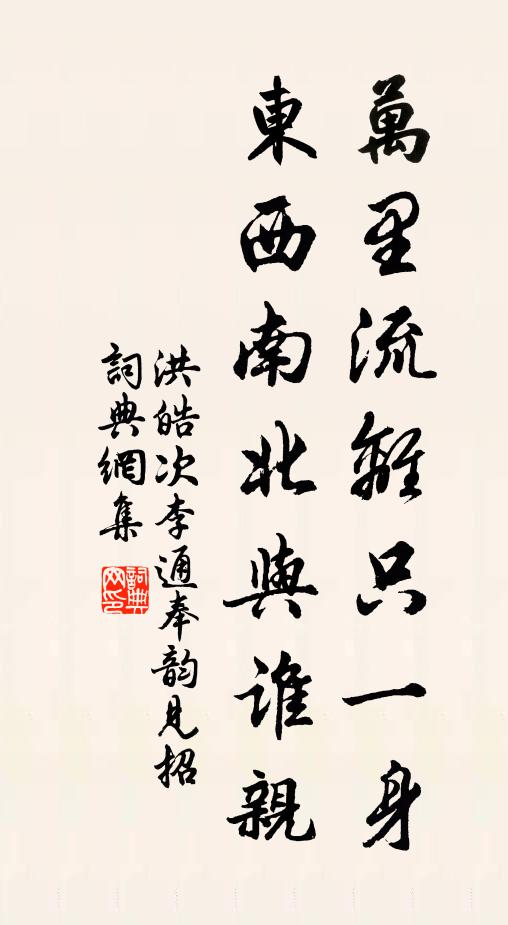 萬里流離只一身
東西南北與誰親
洪皓次李通奉韵見招
詞典網集
詞典網印